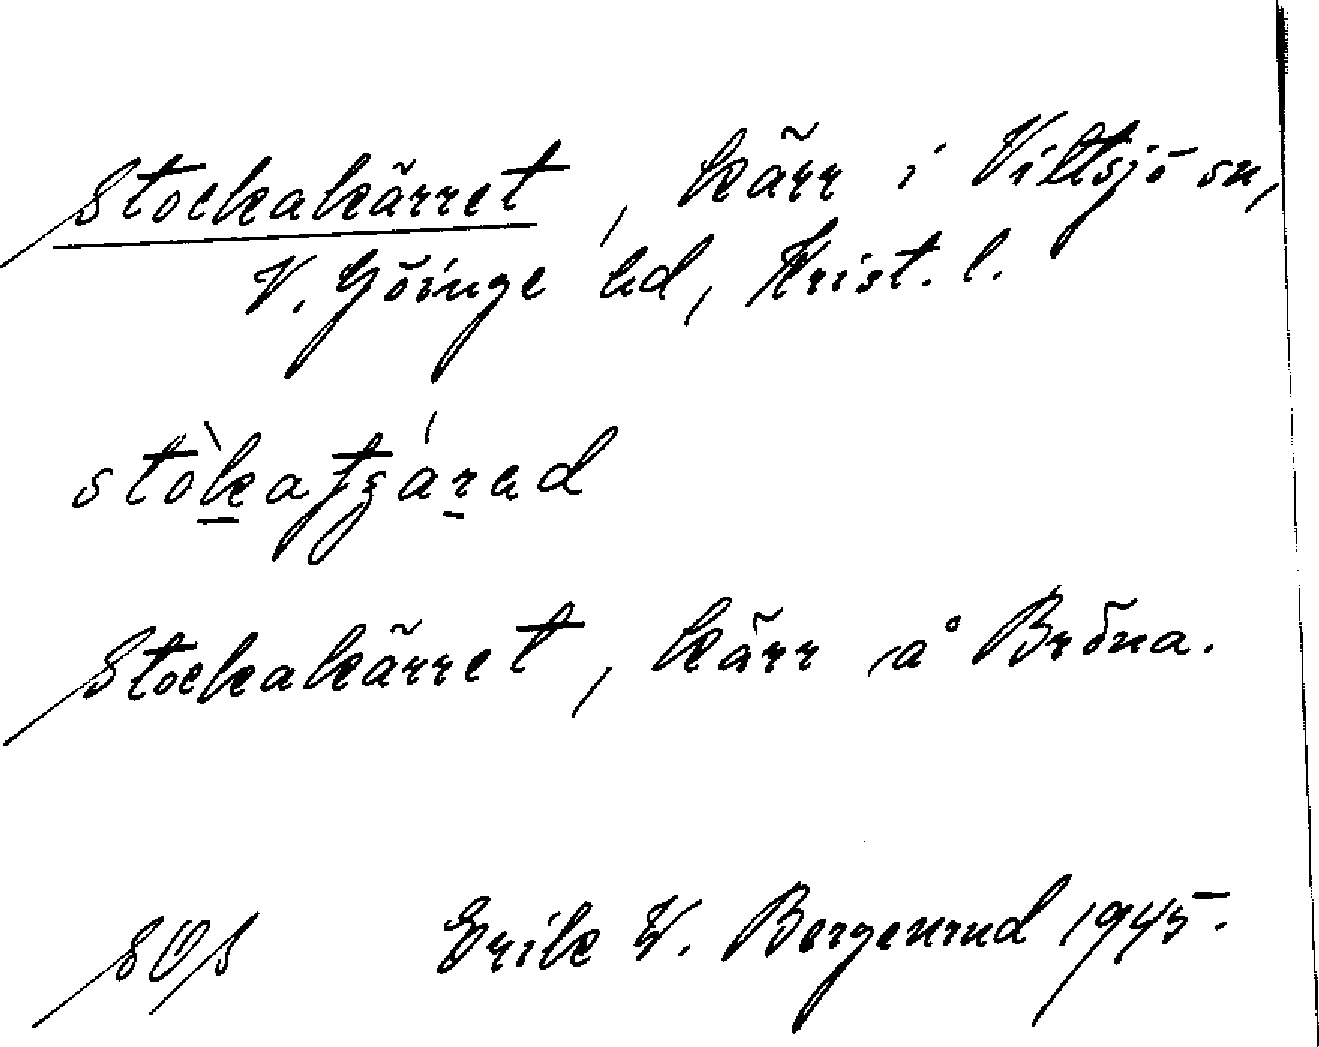 Stockakärret, kärr i Vittsjö sn,
V. Göinge hd, Krist. l.
Stockakärret, kärr å Bröna.
Erik W. Bergenrud 1945.